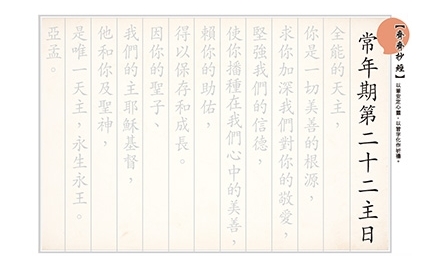 【齊齊抄經】
以筆安定心靈,以習字化作祈禱。
常年期第二十二主日
全能的天主,
你是一切美善的根源,
求你加深我們對你的敬愛,
堅強我們的信德,
使你播種在我們心中的美善,
賴你的助佑,
得以保存和成長。
因你的聖子、
我們的主耶穌基督,
他和你及聖神,
是唯一天主,永生永王。
亞孟。